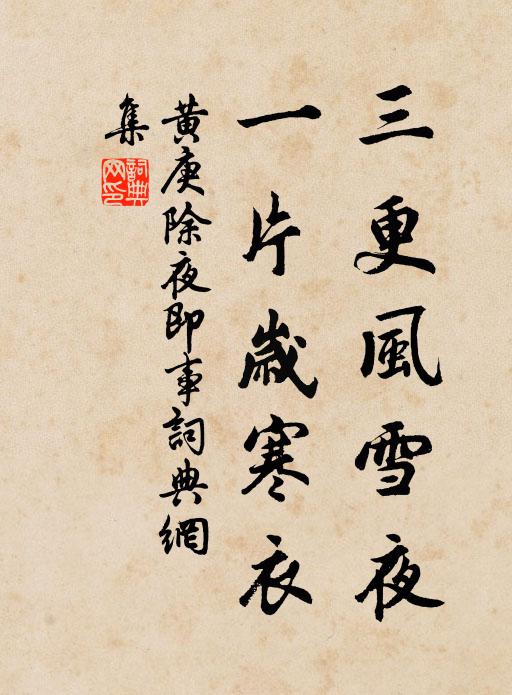 三更風雪夜
一片歲寒衣
黄庚除夜即事詞典網
集
詞典
网印